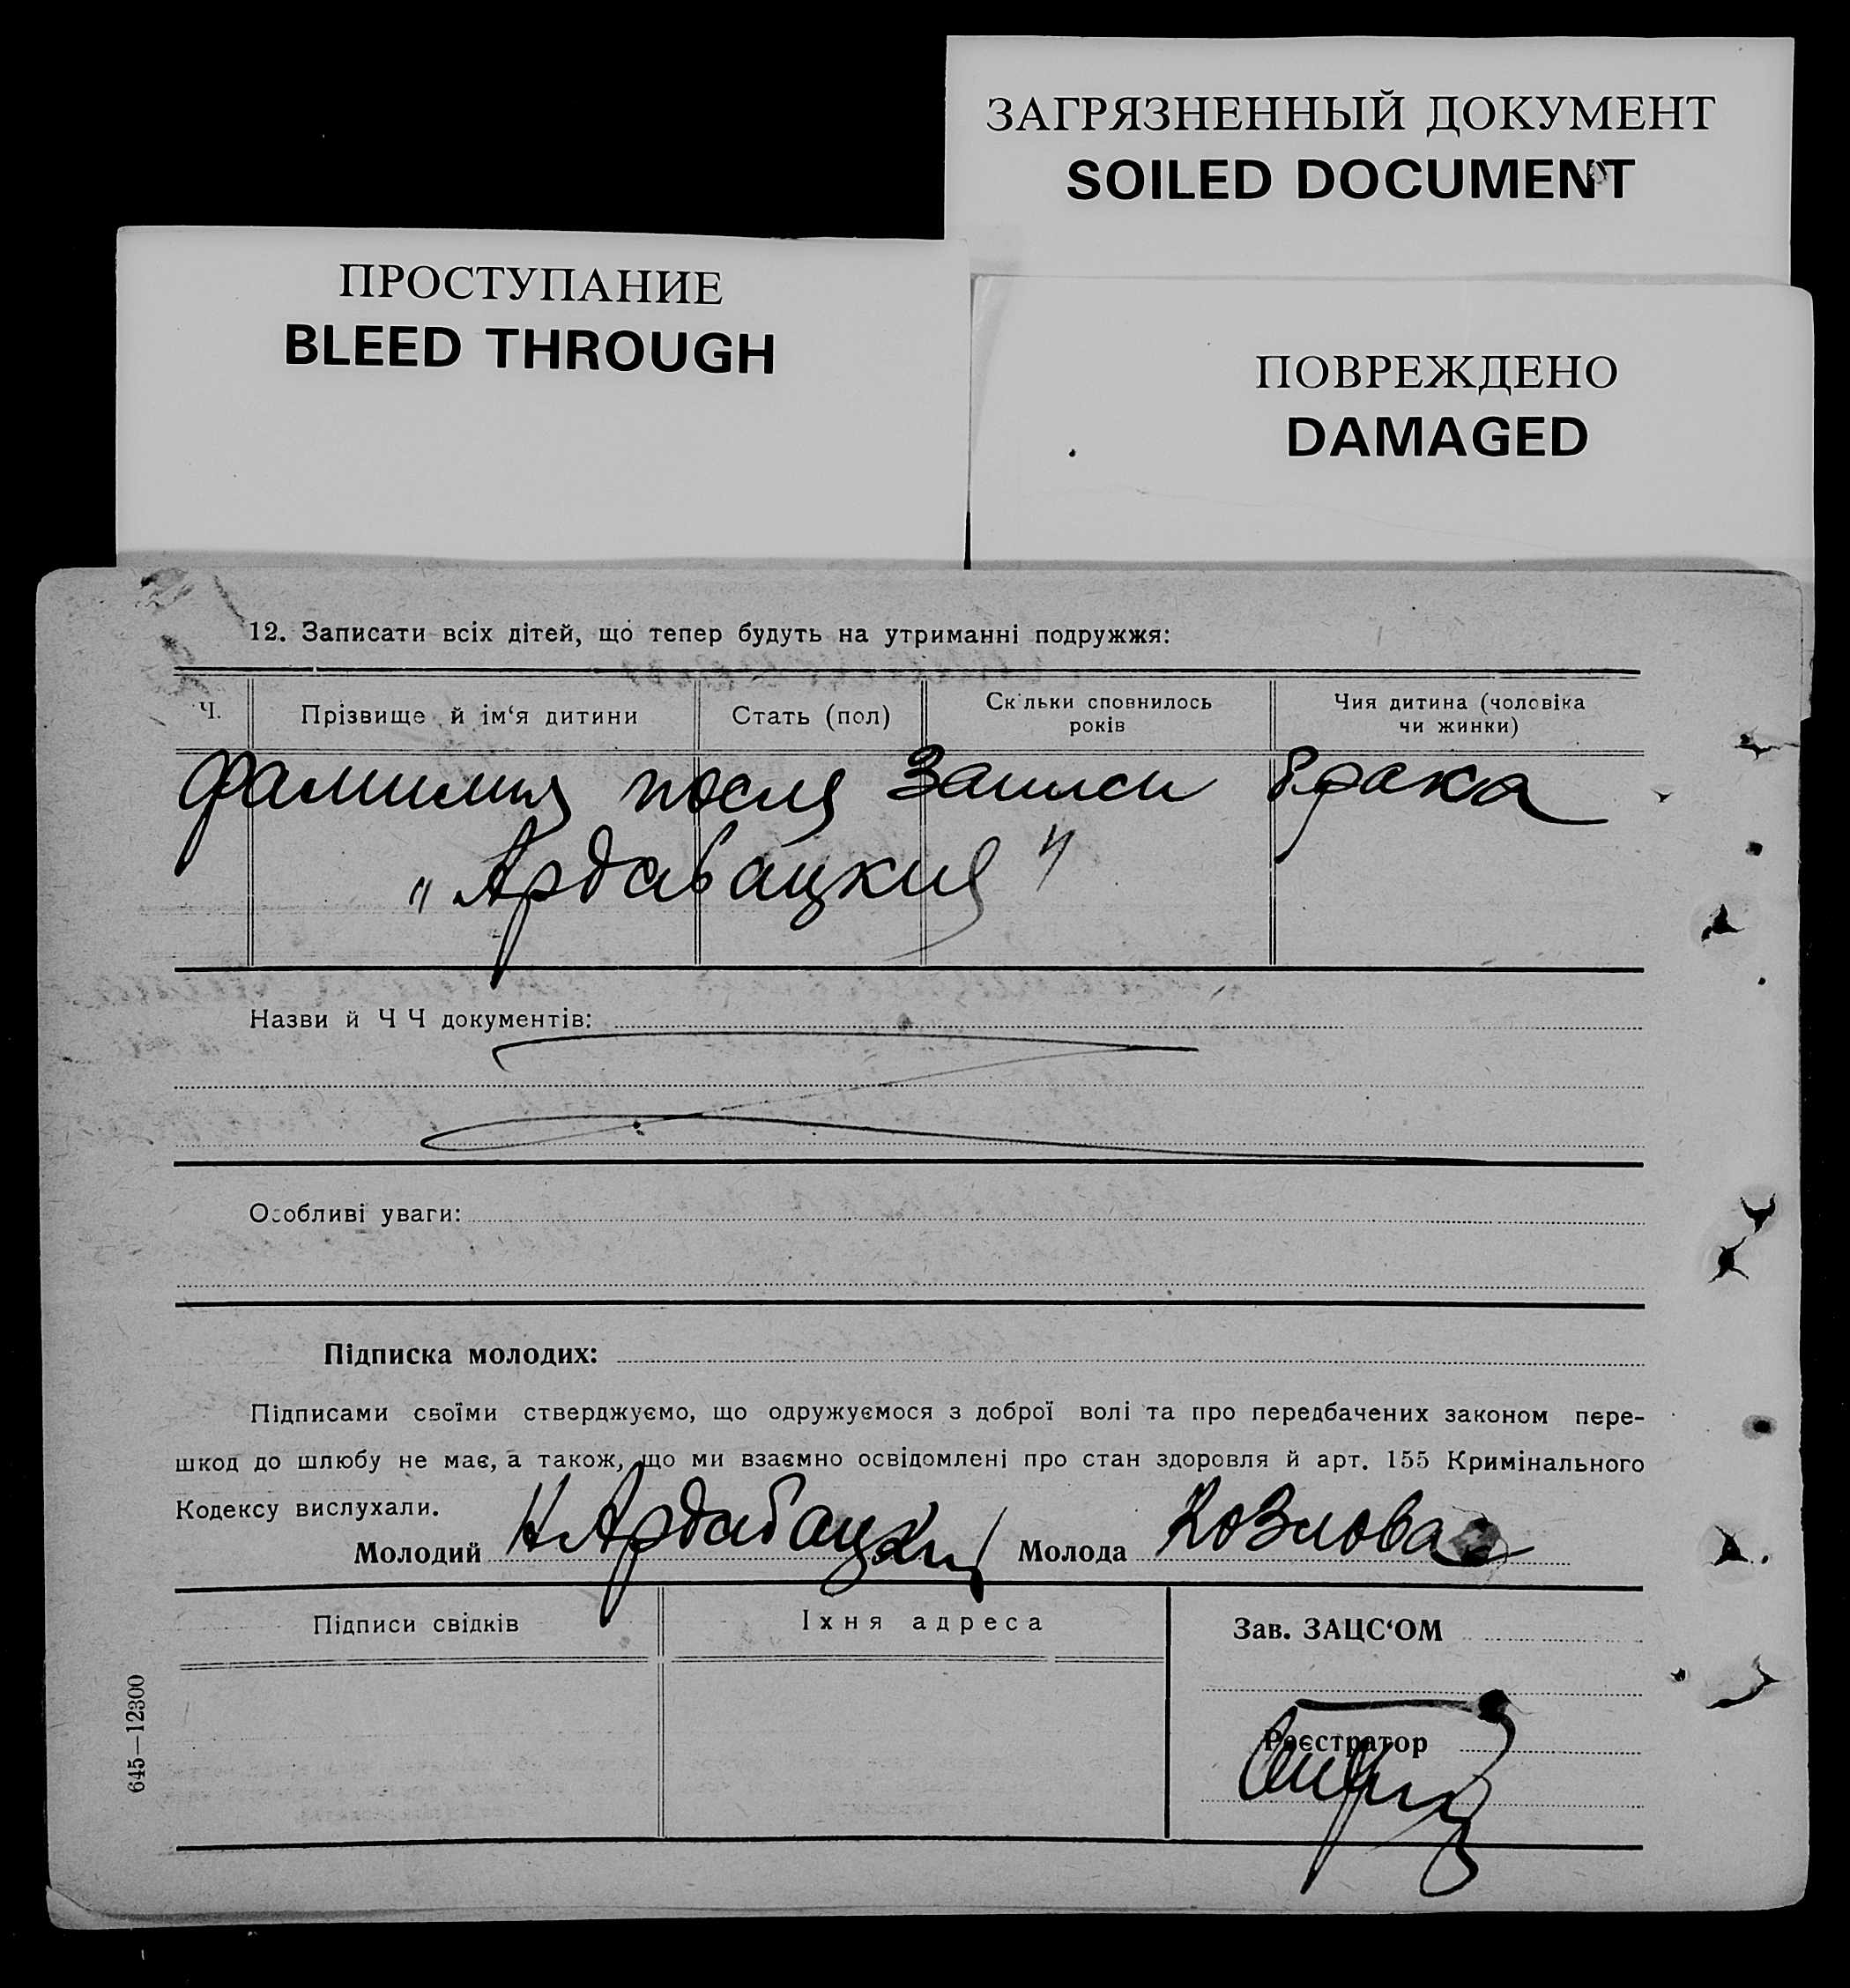 ЗАГРЯЗНЕННЫЙ ДОКУМЕНТ
SOILED DOCUMENT
ПРОСТУПАНИЕ
BLEED THROUGH
ПОВРЕЖДЕНО
DAMAGED
12. Записати всіх дітей, що тепер будуть на утриманні подружжя:
Ч.
Прізвище й ім‘я дитини
Стать (пол)
Скільки сповнилось
років
Чия дитина (чоловіка
чи жинки)
фамилия после записи брака
„Ардабацкия"
Назви й Ч Ч документів:
Особливі уваги:
Підписка молодих:
Підписами своїми стверджуємо, що одружуємося з доброї волі та про передбачених законом пере-
шкод до шлюбу не має, а також, що ми взаємно освідомлені про стан здоровля й арт. 155 Кримінального
Кодексу вислухали.
Молодий Н Ардабацкий Молода Козлова
Підписи свідків
Іхня адреса
Зав. ЗАЦС‘ОМ
Реєстратор
645—12300